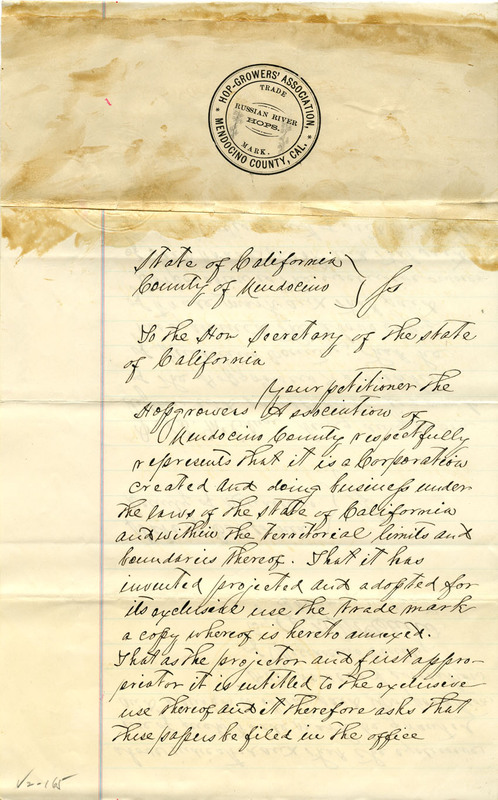 HOP-GROWERS' ASSOCIATION,
TRADE
RUSSIAN RIVER
HOPS.
MARK.
MENDOCINO COUNTY, CAL.
State of California
County of Mendocino } Ss
To the Hon Secretary of the state
of California
Your petitioner the
Hopgrowers Association of
Mendocino County respectfully
represents that it is a Corporation
created and doing business under
the laws of the state of California
and within the territorial limits and
boundaries thereof. That it has
invented projected and adopted for
its exclusive use the trade mark
a copy whereof is hereto annexed.
That as the projector and first appro-
priator it is entitled to the exclusive
use thereof and it therefore asks that
these papers be filed in the office
V2-165